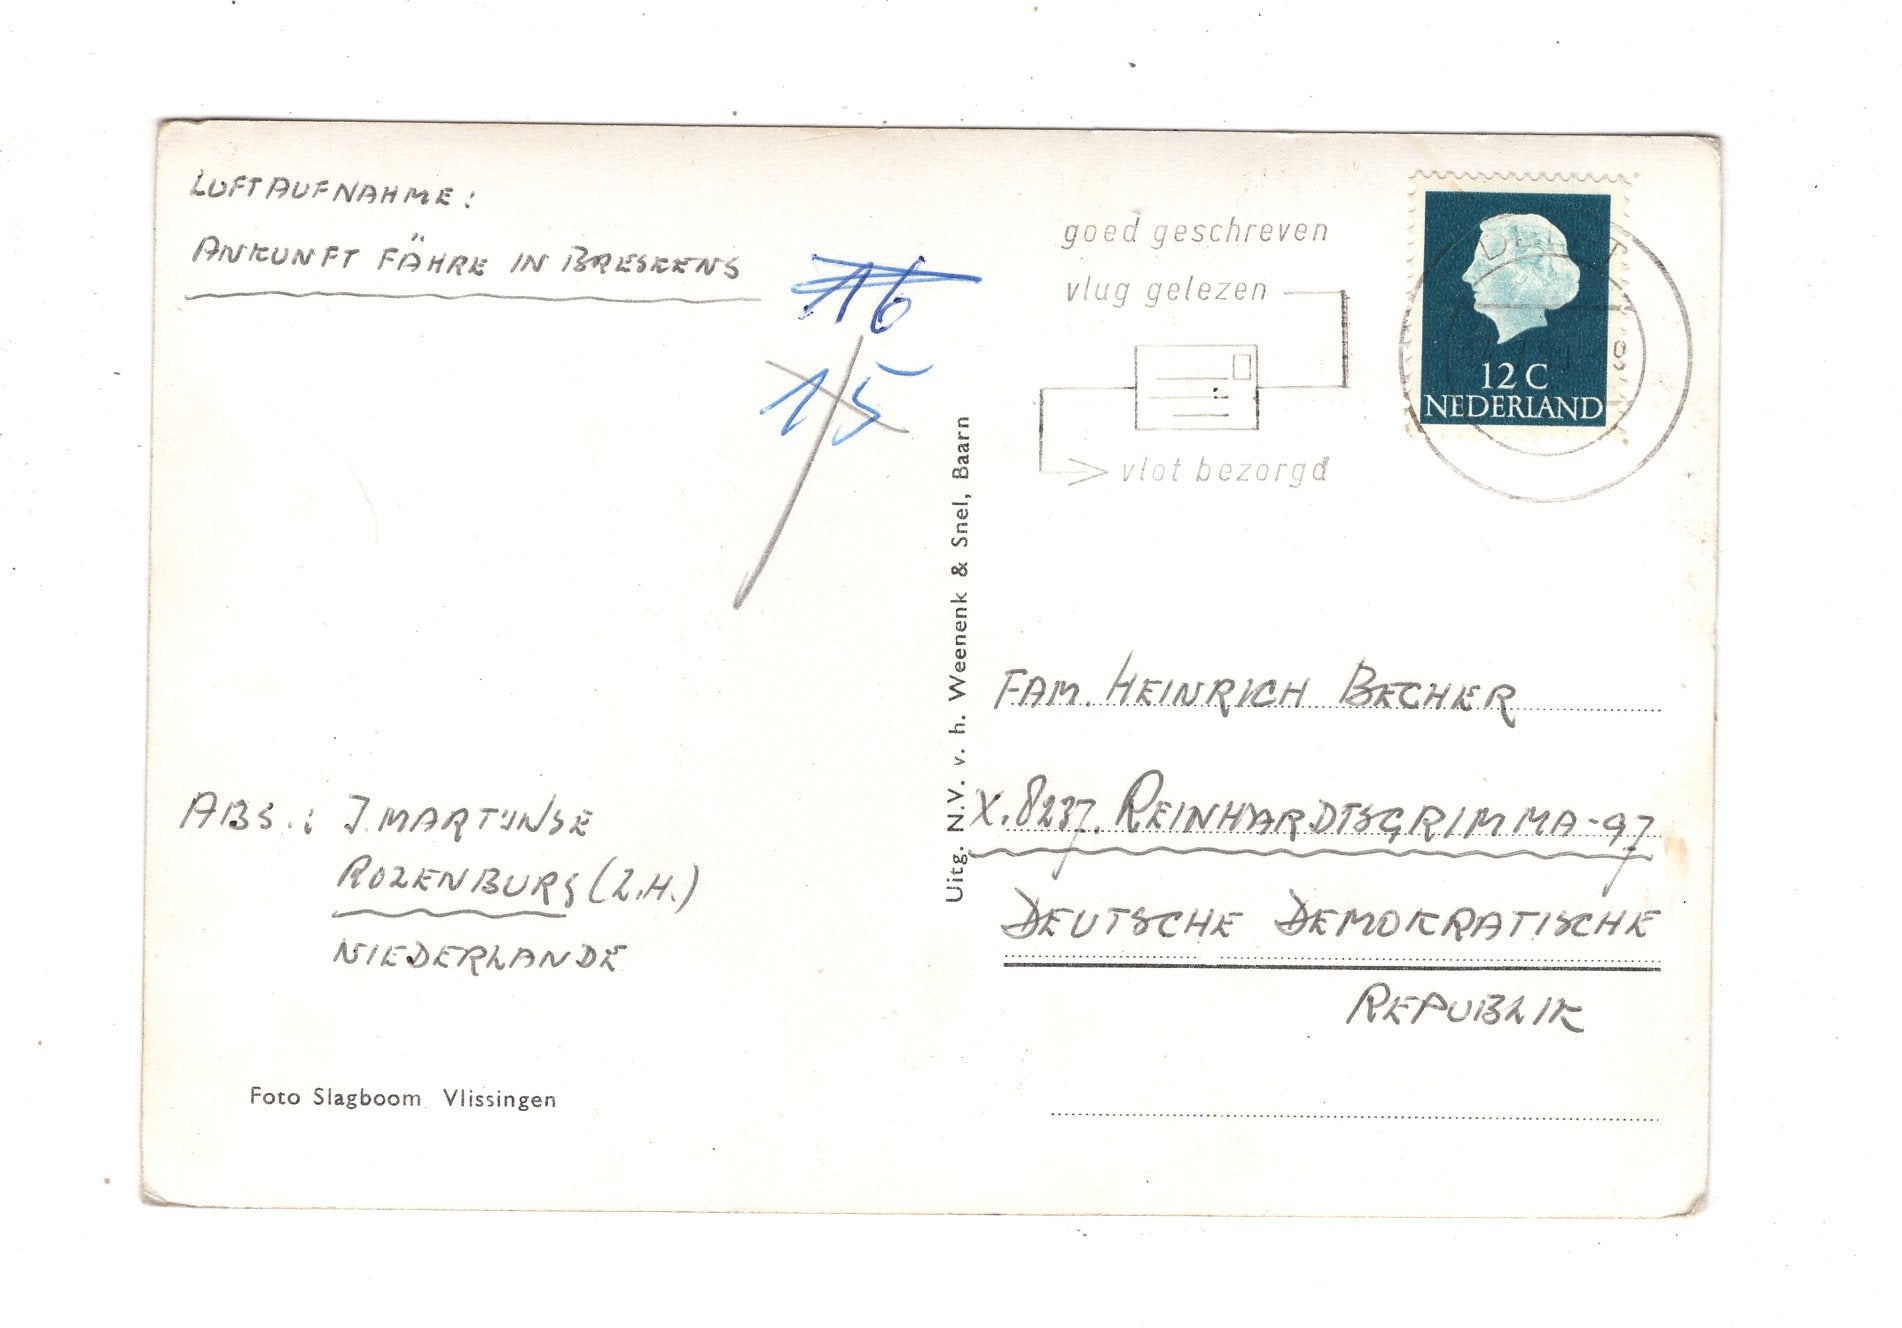 LUFTAUFNAHME:
ANKUNFT FÄHRE IN BRESKENS
16
15
ABS.: J. MARTIJNSE
ROZENBURG (Z.H.)
NIEDERLANDE
Foto Slagboom Vlissingen
Uitg. N.V. v. h. Weenenk & Snel, Baarn
goed geschreven
vlug gelezen
vlot bezorgd
12 C
NEDERLAND
FAM. HEINRICH BECHER
X.8237. REINHARDTSGRIMMA-97
DEUTSCHE DEMOKRATISCHE
REPUBLIK